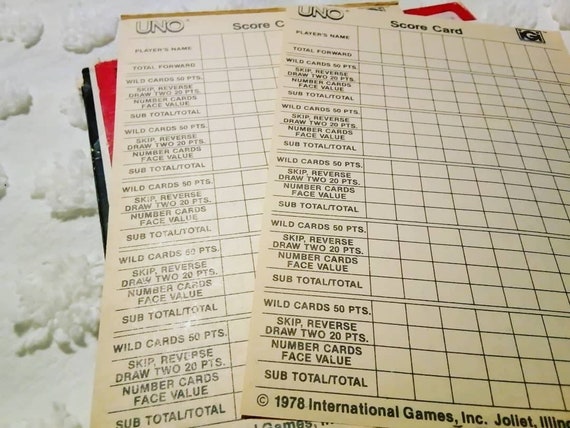 UNO
Score Card
PLAYER'S NAME
TOTAL FORWARD
WILD CARDS 50 PTS.
SKIP, REVERSE
DRAW TWO 20 PTS.
NUMBER CARDS
FACE VALUE
SUB TOTAL/TOTAL
WILD CARDS 50 PTS.
SKIP, REVERSE
DRAW TWO 20 PTS.
NUMBER CARDS
FACE VALUE
SUB TOTAL/TOTAL
WILD CARDS 50 PTS.
SKIP, REVERSE
DRAW TWO 20 PTS.
NUMBER CARDS
FACE VALUE
SUB TOTAL/TOTAL
WILD CARDS 50 PTS.
SKIP, REVERSE
DRAW TWO 20 PTS.
NUMBER CARDS
FACE VALUE
SUB TOTAL/TOTAL
WILD CARDS 50 PTS.
SKIP, REVERSE
DRAW TWO 20 PTS.
NUMBER CARDS
FACE VALUE
SUB TOTAL/TOTAL
UNO
Score Card
PLAYER'S NAME
TOTAL FORWARD
WILD CARDS 50 PTS.
SKIP, REVERSE
DRAW TWO 20 PTS.
NUMBER CARDS
FACE VALUE
SUB TOTAL/TOTAL
WILD CARDS 50 PTS.
SKIP, REVERSE
DRAW TWO 20 PTS.
NUMBER CARDS
FACE VALUE
SUB TOTAL/TOTAL
WILD CARDS 50 PTS.
SKIP, REVERSE
DRAW TWO 20 PTS.
NUMBER CARDS
FACE VALUE
SUB TOTAL/TOTAL
WILD CARDS 50 PTS.
SKIP, REVERSE
DRAW TWO 20 PTS.
NUMBER CARDS
FACE VALUE
SUB TOTAL/TOTAL
WILD CARDS 50 PTS.
SKIP, REVERSE
DRAW TWO 20 PTS.
NUMBER CARDS
FACE VALUE
SUB TOTAL/TOTAL
© 1978 International Games, Inc. Joliet, Illin
al Games, Inc.